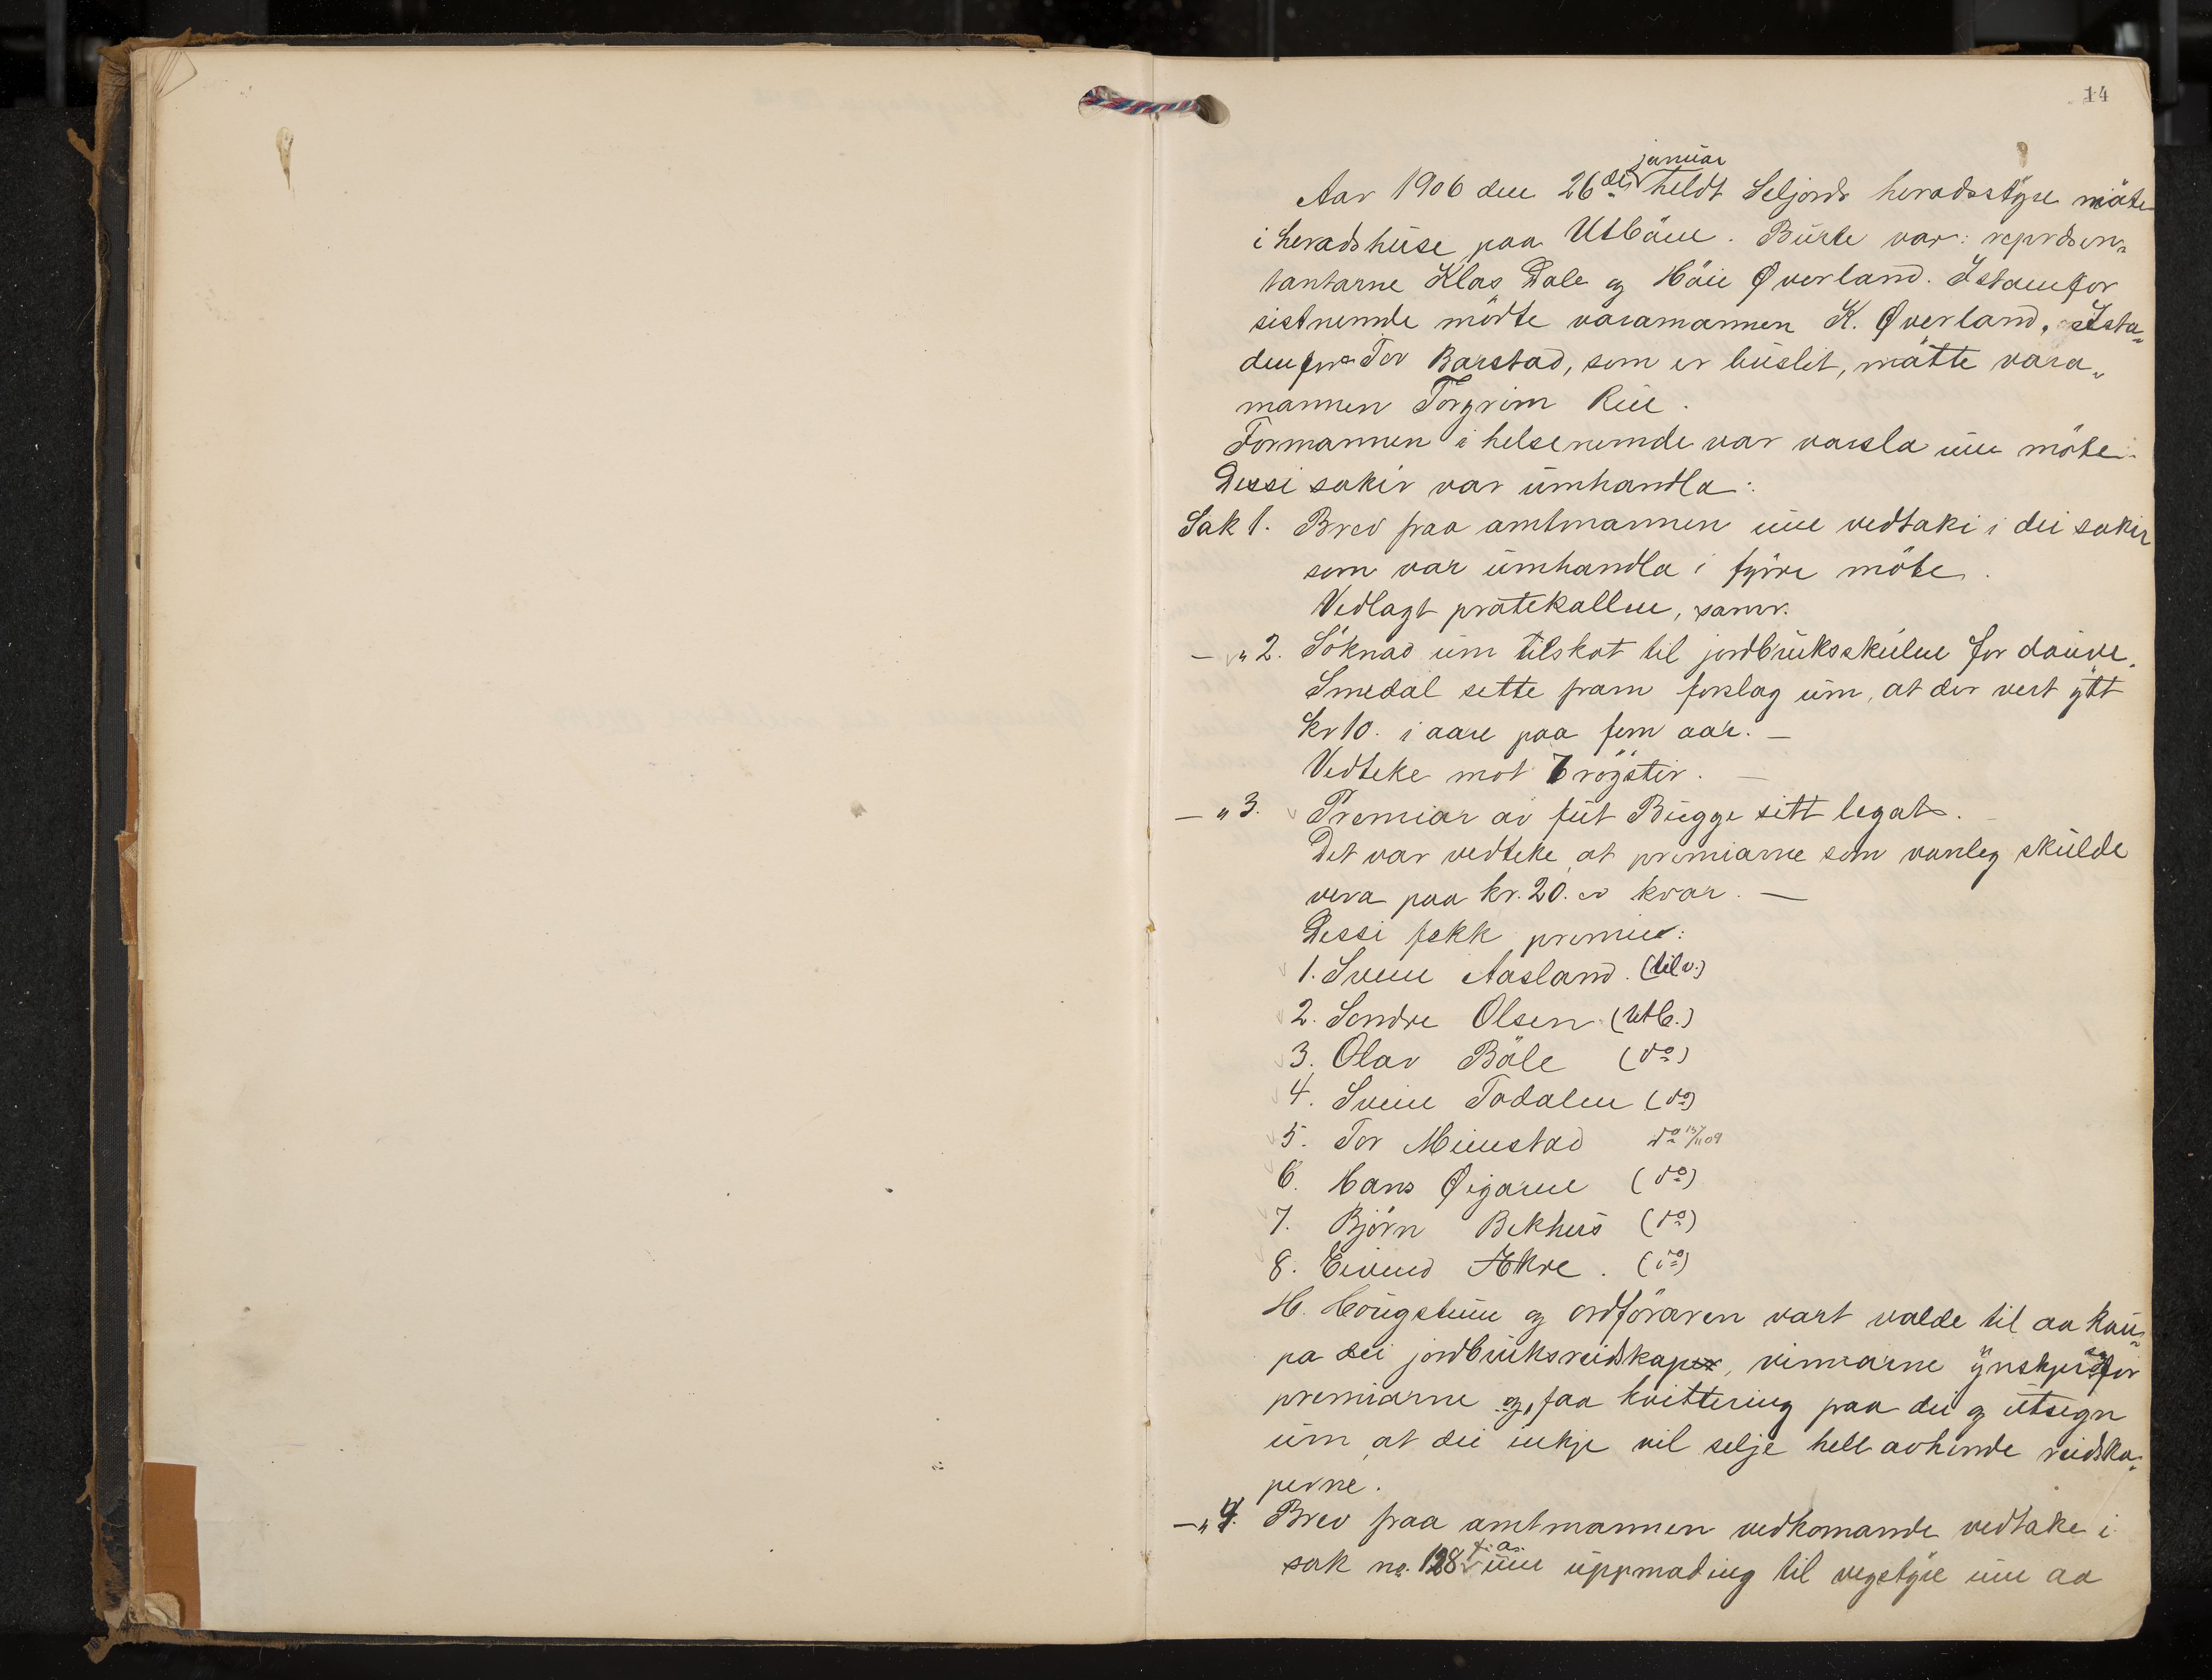 14
januar
Aar 1906 den 26de heldt Seljords heradsstyre möte
i heradshuse paa Utböen. Burte var: reprdsen-
tantarne Klas Dale og Håie Øverland. Istaden for
sistnemde mödte varamannen K. Øverland. Ista-
den for Tov Barstad, som er buslit, mötte vara-
mannen Torgrim Rue.
Formannen i helsenemde var varsla um möte.
Dessi sakir var umhandla:
Sak 1. Brev fraa amtmannen um vedtaki i dei sakir
som var umhandla i fyrre möte.
Vedlagt protekallen, samr.
— „ 2. Söknad um tilskot til jordbruksskulen for dauve.
Smedal sette fram forslag um, at der vert ytt
kr 10. i aare paa fem aar. —
Vedteke mot 7 röyster. —
— „ 3. Premiar av fut Bugge sitt legat.
Det var vedteke at premiarne som vanleg skulde
vera paa kr. 20.00 kvar. —
Dessi fekk premie:
1. Svein Aasland. (tilv.)
2. Sondre Olsen (Utb.)
3. Olav Böle (do)
4. Svein Todalen (do)
5. Tov Mienstad do 15/11 09
6. Hans Øigarne (do)
7. Björn Bekhus (do)
8. Eivind Ækre. (do)
H. Haugstuen og ordföraren vart valde til aa kau-
pa dei jordbruksreidskaper, vinnarne ynskjer for
premiarne og faa kvittering paa dei og utsegn
um at dei inkje vil selje hell avhende reidska-
perne.
— „ 4. Brev fraa amtmannen vedkomande vedtake i
f. a.
sak no. 128 um uppmoding til vegstyre um aa